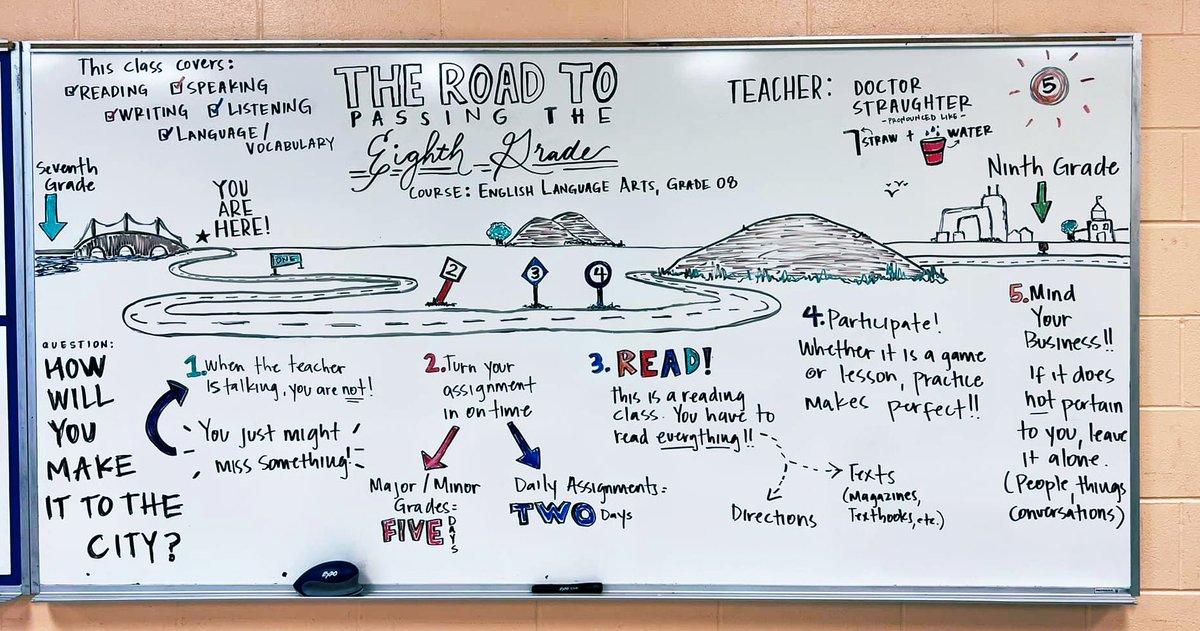 This class covers:
READING SPEAKING
WRITING LISTENING
LANGUAGE/
VOCABULARY
THE ROAD TO
PASSING THE
Eighth Grade
COURSE: ENGLISH LANGUAGE ARTS, GRADE 08
TEACHER: DOCTOR
STRAUGHTER
-PRONOUNCED LIKE-
STRAW + WATER
5
Seventh
Grade
YOU
ARE
HERE!
Ninth Grade
ONE
2
3
4
QUESTION:
HOW
WILL
YOU
MAKE
IT TO THE
CITY?
1. When the teacher
is talking, you are not!
You just might
miss something!
2. Turn your
assignment
in on time
Major/Minor
Grades=
FIVE DAYS
Daily Assignments=
TWO Days
3. READ!
This is a reading
class. You have to
read everything!!
Directions
Texts
(Magazines,
Textbooks, etc.)
4. Participate!
Whether it is a game
or lesson, practice
makes perfect!!
5. Mind
Your
Business!!
If it does
not pertain
to you, leave
it alone.
(People, things
conversations)
EXPO
EXPO